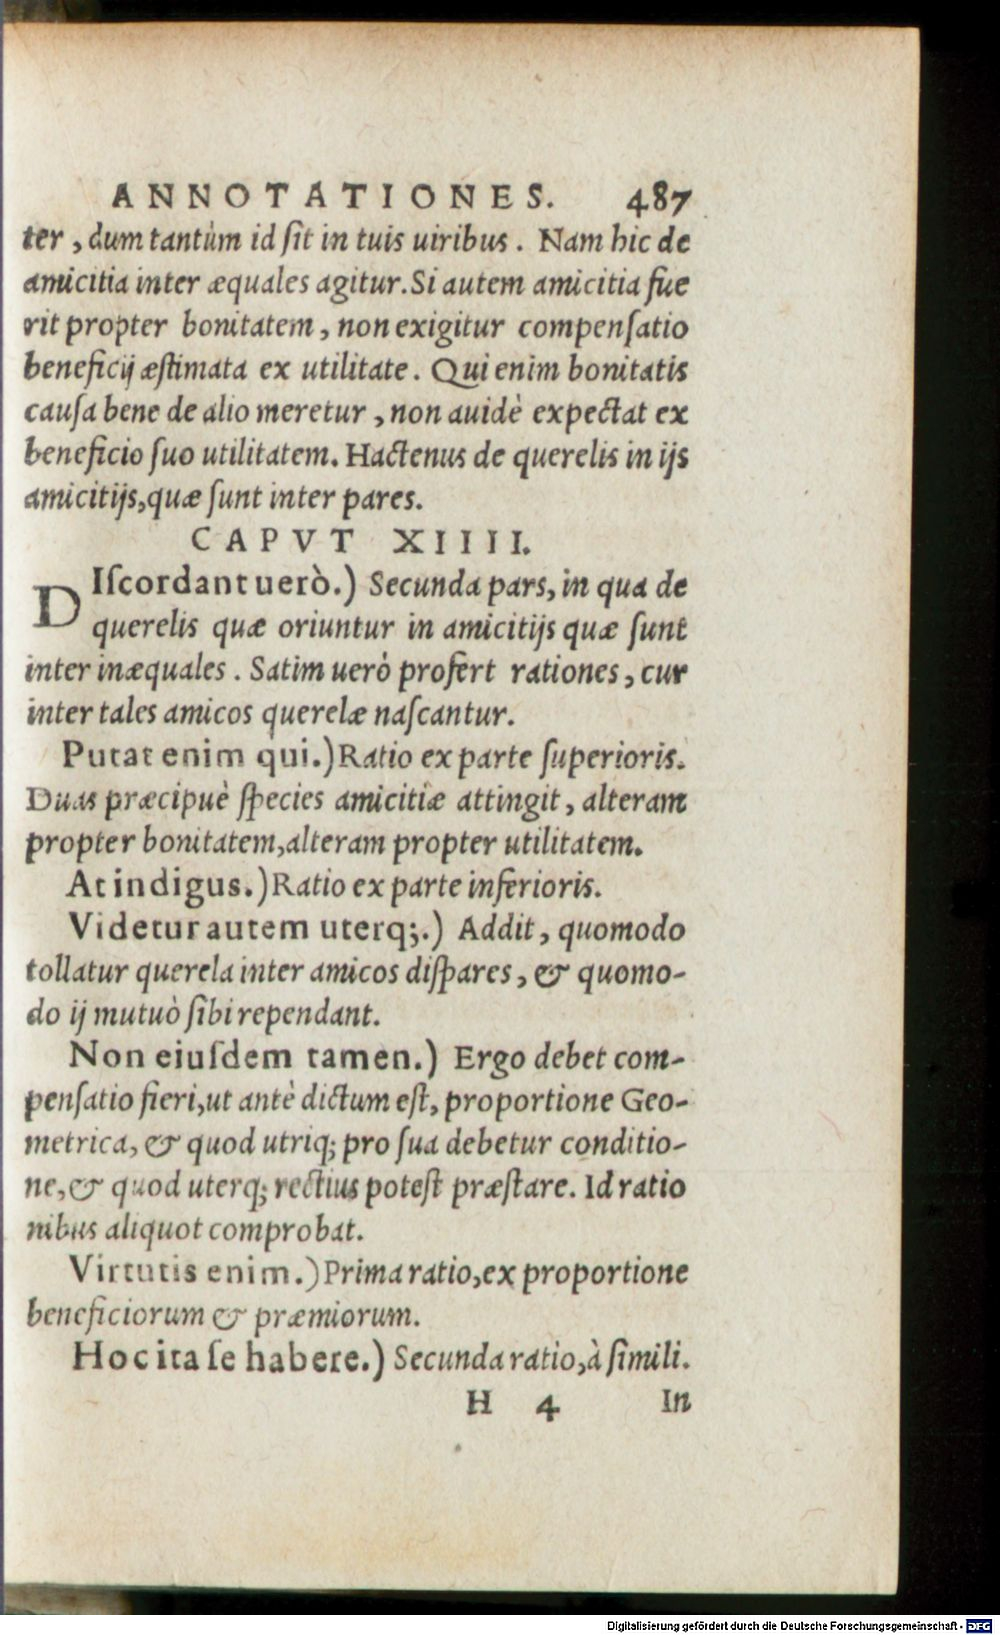 ANNOTATIONES. 487
ter, dum tantùm id ſit in tuis uiribus. Nam hic de
amicitia inter æquales agitur. Si autem amicitia fue
rit propter bonitatem, non exigitur compenſatio
beneficij æſtimata ex utilitate. Qui enim bonitatis
cauſa bene de alio meretur, non auidè expectat ex
beneficio ſuo utilitatem. Hactenus de querelis in ijs
amicitijs, quæ ſunt inter pares.
CAPVT XIIII.
DIſcordant uerò.) Secunda pars, in qua de
querelis quæ oriuntur in amicitijs quæ ſunt
inter inæquales. Satim uerò profert rationes, cur
inter tales amicos querelæ naſcantur.
Putat enim qui.) Ratio ex parte ſuperioris.
Duas præcipuè ſpecies amicitiæ attingit, alteram
propter bonitatem, alteram propter utilitatem.
At indigus.) Ratio ex parte inferioris.
Videtur autem uterq;.) Addit, quomodo
tollatur querela inter amicos diſpares, & quomo-
do ij mutuò ſibi rependant.
Non eiuſdem tamen.) Ergo debet com-
penſatio fieri, ut antè dictum eſt, proportione Geo-
metrica, & quod utriq; pro ſua debetur conditio-
ne, & quod uterq; rectius poteſt præſtare. Id ratio
nibus aliquot comprobat.
Virtutis enim.) Prima ratio, ex proportione
beneficiorum & præmiorum.
Hoc ita ſe habere.) Secunda ratio, à ſimili.
H 4 In
Digitalisierung gefördert durch die Deutsche Forschungsgemeinschaft - DFG